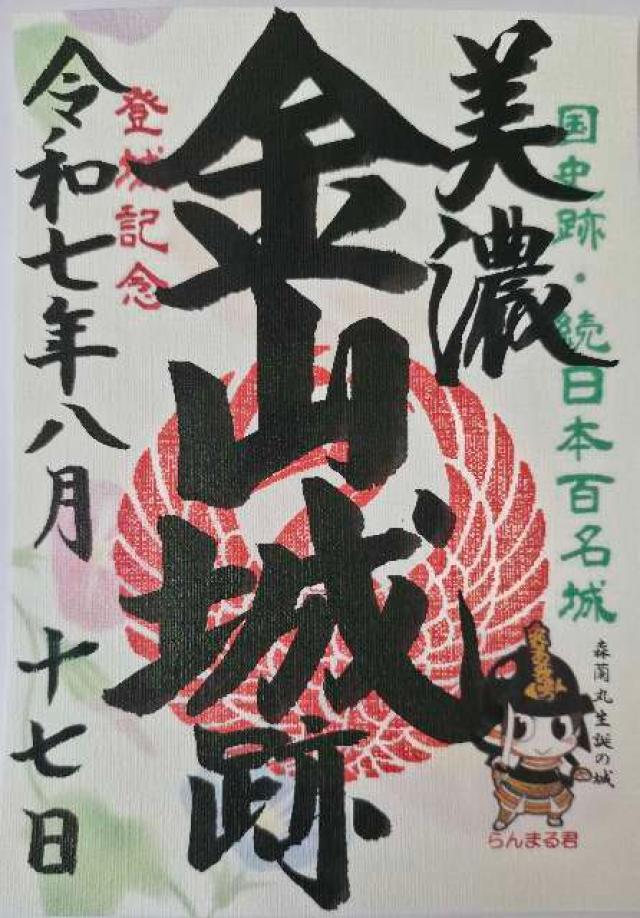 国史跡・続日本百名城
美濃
金山城跡
登城記念
令和七年八月 十七日
森蘭丸生誕の城
らんまる君